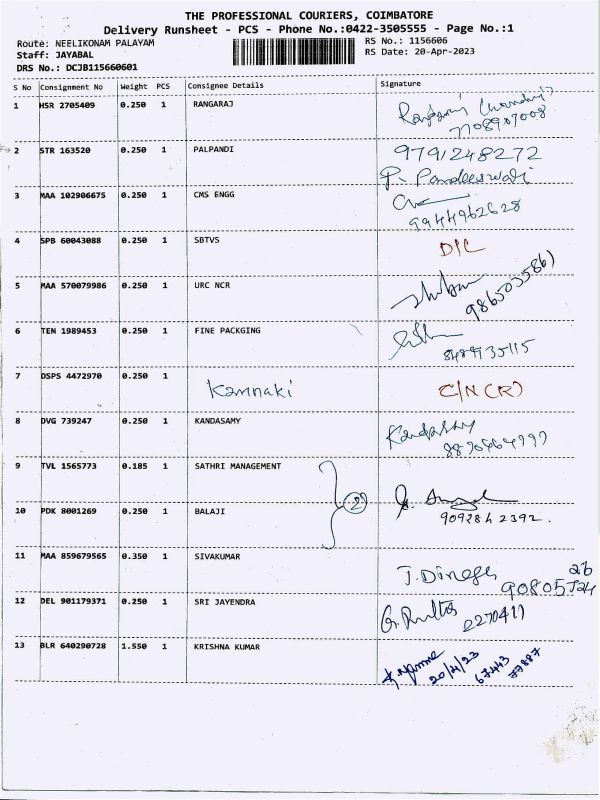 THE PROFESSIONAL COURIERS, COIMBATORE
Delivery Runsheet - PCS - Phone No.:0422-3505555 - Page No.:1
Route: NEELIKONAM PALAYAM
RS No.: 1156606
Staff: JAYABAL
RS Date: 20-Apr-2023
DRS No.: DCJB115660601
S No Consignment No Weight PCS Consignee Details Signature
1 HSR 2705409 0.250 1 RANGARAJ
7708907008
2 STR 163520 0.250 1 PALPANDI 9791248272
P. Pandeeswari
3 MAA 102906675 0.250 1 CMS ENGG
9944962628
4 SPB 60043088 0.250 1 SBTVS D/L
5 MAA 570079986 0.250 1 URC NCR
6 TEN 1989453 0.250 1 FINE PACKGING
7 OSPS 4472970 0.250 1 Kannaki C/N (R)
8 DVG 739247 0.250 1 KANDASAMY
9 TVL 1565773 0.185 1 SATHRI MANAGEMENT
2
10 PDK 8001269 0.250 1 BALAJI
9092842392.
11 MAA 859679565 0.350 1 SIVAKUMAR
J. Dinesh
12 DEL 901179371 0.250 1 SRI JAYENDRA
13 BLR 640290728 1.550 1 KRISHNA KUMAR
20/4/23
67443
77887